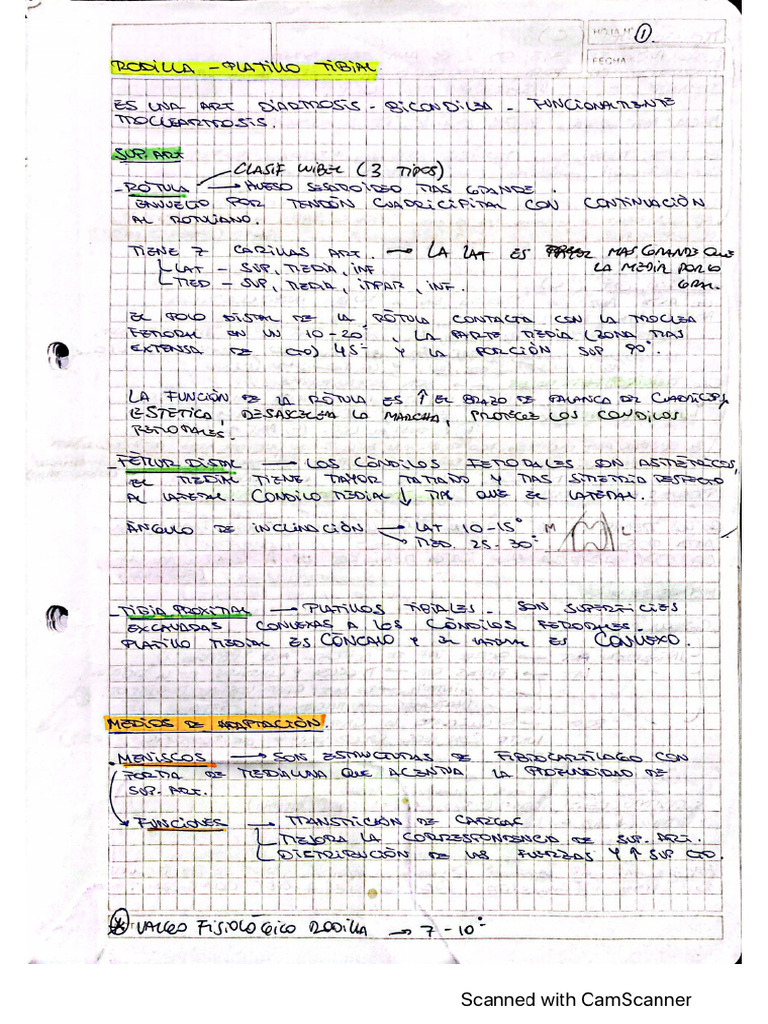 HOJA Nº 1
FECHA
RODILLA - PLATILLO TIBIAL
ES UNA ART DIARTROSIS - BICONDILEA - FUNCIONALMENTE
TROCLEARTROSIS.
SUP. ART
CLASIF WIBEL (3 TIPOS)
- RÓTULA → HUESO SESAMOIDEO MAS GRANDE.
ENVUELTO POR TENDÓN CUADRICIPITAL CON CONTINUACIÓN
AL ROTULIANO.
TIENE 7 CARILLAS ART. → LA LAT ES MAS GRANDE QUE
LA MEDIA POR LO
GRAL.
LAT - SUP, MEDIA, INF
MED - SUP, MEDIA, IMPAR, INF.
EL POLO DISTAL DE LA RÓTULA CONTACTA CON LA TROCLEA
FEMORAL EN UN 10-20°, LA PARTE MEDIA (ZONA MAS
EXTENSA DE CTO) 45° Y LA PORCIÓN SUP 90°.
LA FUNCIÓN DE LA RÓTULA ES ↑ EL BRAZO DE PALANCA DEL CUADRICEPS,
ESTETICA, DESACELERA LA MARCHA, PROTEGE LOS CONDILOS
FEMORALES.
- FÉMUR DISTAL → LOS CÓNDILOS FEMORALES SON ASIMÉTRICOS,
EL MEDIAL TIENE MAYOR TAMAÑO Y MAS SIMETRIA RESPECTO
AL LATERAL. CONDILO MEDIAL ↓ QUE EL LATERAL.
ÁNGULO DE INCLINACIÓN → LAT 10-15°
→ MED. 25-30°
M L
- TIBIA PROXIMAL → PLATILLOS TIBIALES - SON SUPERFICIES
EXCAVADAS CONVEXAS A LOS CÓNDILOS FEMORALES.
PLATILLO MEDIAL ES CÓNCAVO Y EL LATERAL ES CONVEXO.
MEDIOS DE ADAPTACIÓN.
. MENISCOS → SON ESTRUCTURAS DE FIBROCARTÍLAGO CON
FORMA DE MEDIALUNA QUE ACENTUA LA PROFUNDIDAD DE
SUP. ART.
FUNCIONES → TRANSMICIÓN DE CARGAS
MEJORA LA CORRESPONDENCIA DE SUP. ART.
DISTRIBUCIÓN DE LAS FUERZAS Y ↑ SUP CTO.
* VALGO FISIOLÓGICO RODILLA → 7-10°
Scanned with CamScanner